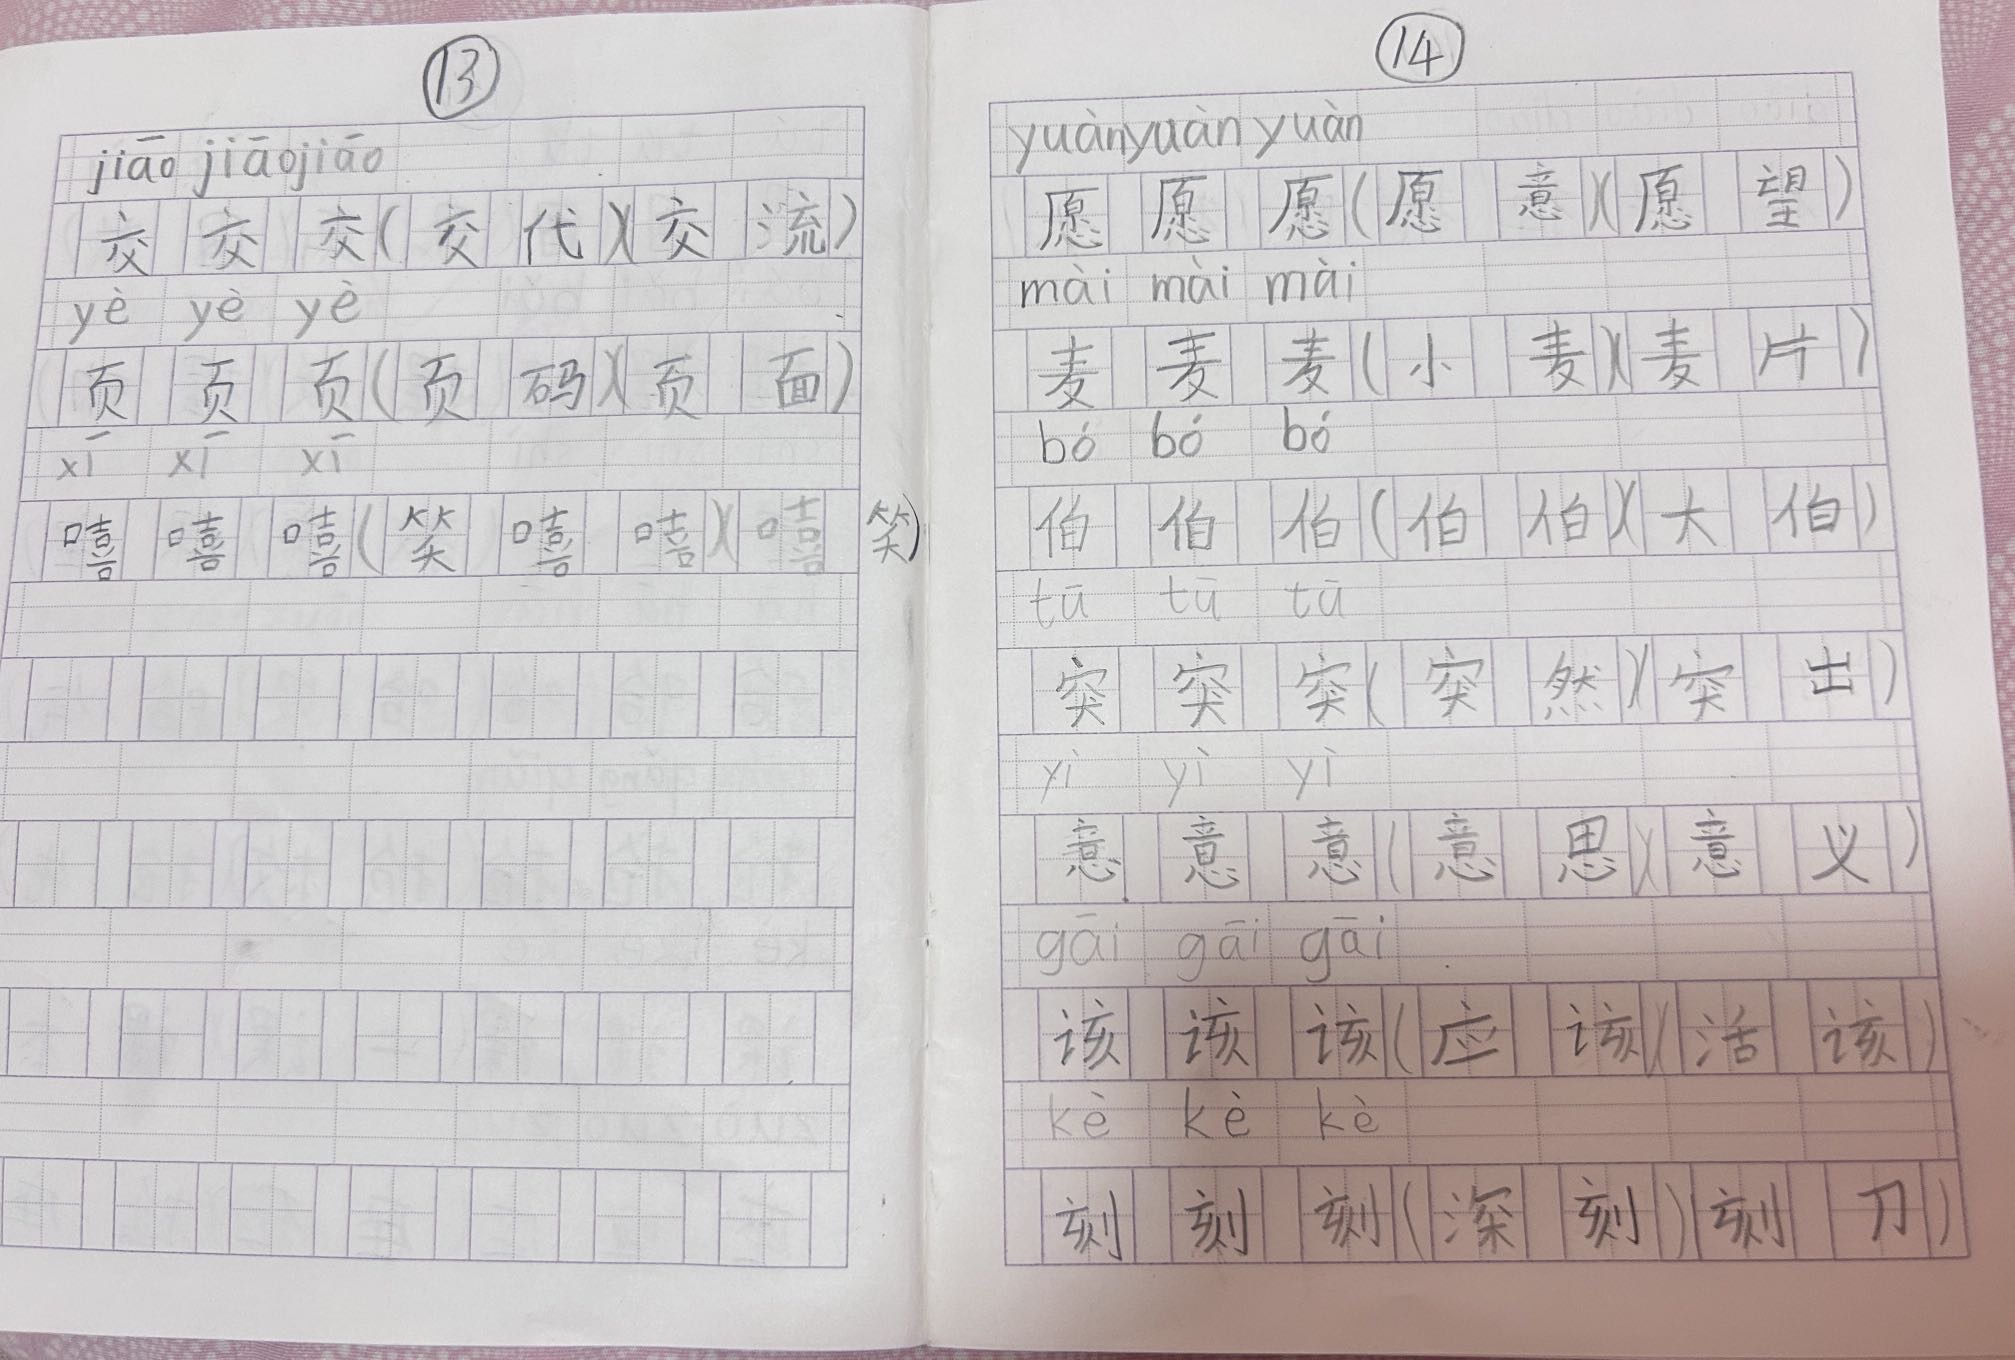 13
jiāo jiāo jiāo
交 交 交(交代)(交流)
yè yè yè
页 页 页(页码)(页面)
xī xī xī
嘻 嘻 嘻(笑嘻嘻)(嘻笑)
14
yuàn yuàn yuàn
愿 愿 愿(愿意)(愿望)
mài mài mài
麦 麦 麦(小麦)(麦片)
bó bó bó
伯 伯 伯(伯伯)(大伯)
tū tū tū
突 突 突(突然)(突出)
yì yì yì
意 意 意(意思)(意义)
gāi gāi gāi
该 该 该(应该)(活该)
kè kè kè
刻 刻 刻(深刻)(刻刀)